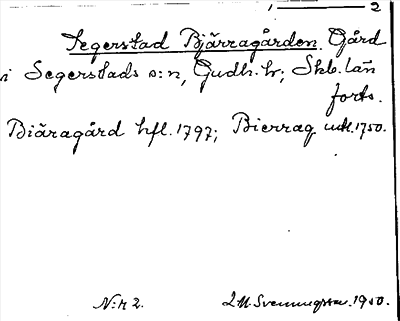 1 — 2
Segerstad Bjärragården. Gård
i Segerstads s:n, Gudh. hr; Skb. län
forts.
Biäragård hfl. 1797; Bierrag utkl. 1750.
N:r 2. 1950.